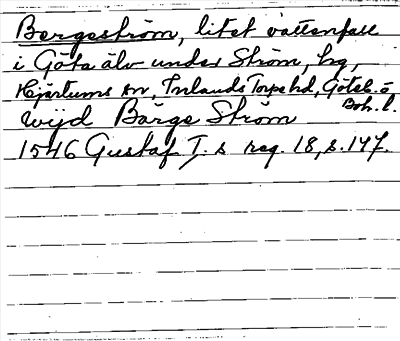 Bergeström, litet vattenfall
i Göta älv under Ström, hg,
Hjärtums sn, Inlands Torpe hd, Göteb. o.
Boh. l.
wijd Bärge Ström
1546 Gustaf I. s reg. 18, s. 147.